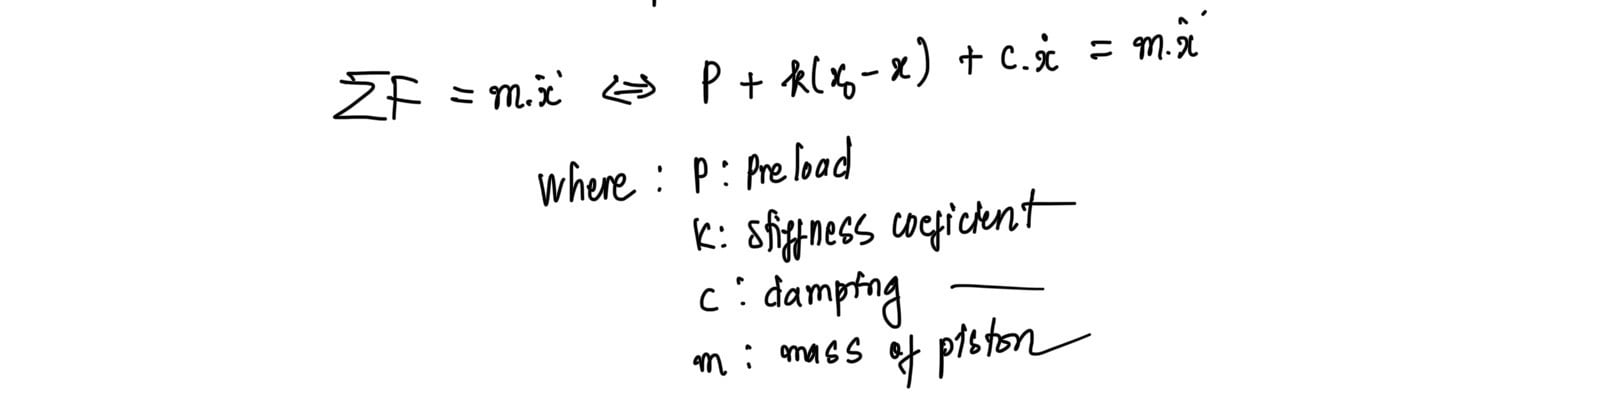 ΣF = m.ẍ ⇔ P + k(x₀ - x) + c.ẋ = m.ẍ
where : P : Preload
K : stiffness coeficient
c : damping ——
m : mass of piston